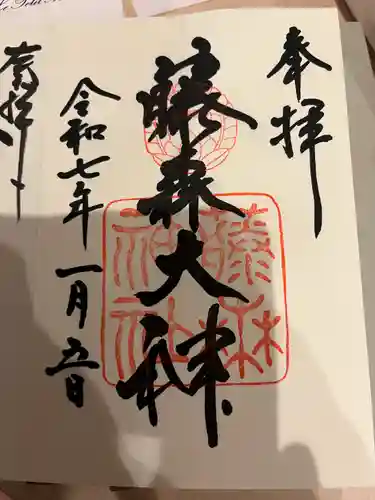 奉拝
藤森大神
藤森
神社
令和七年
一月五日
奉拝